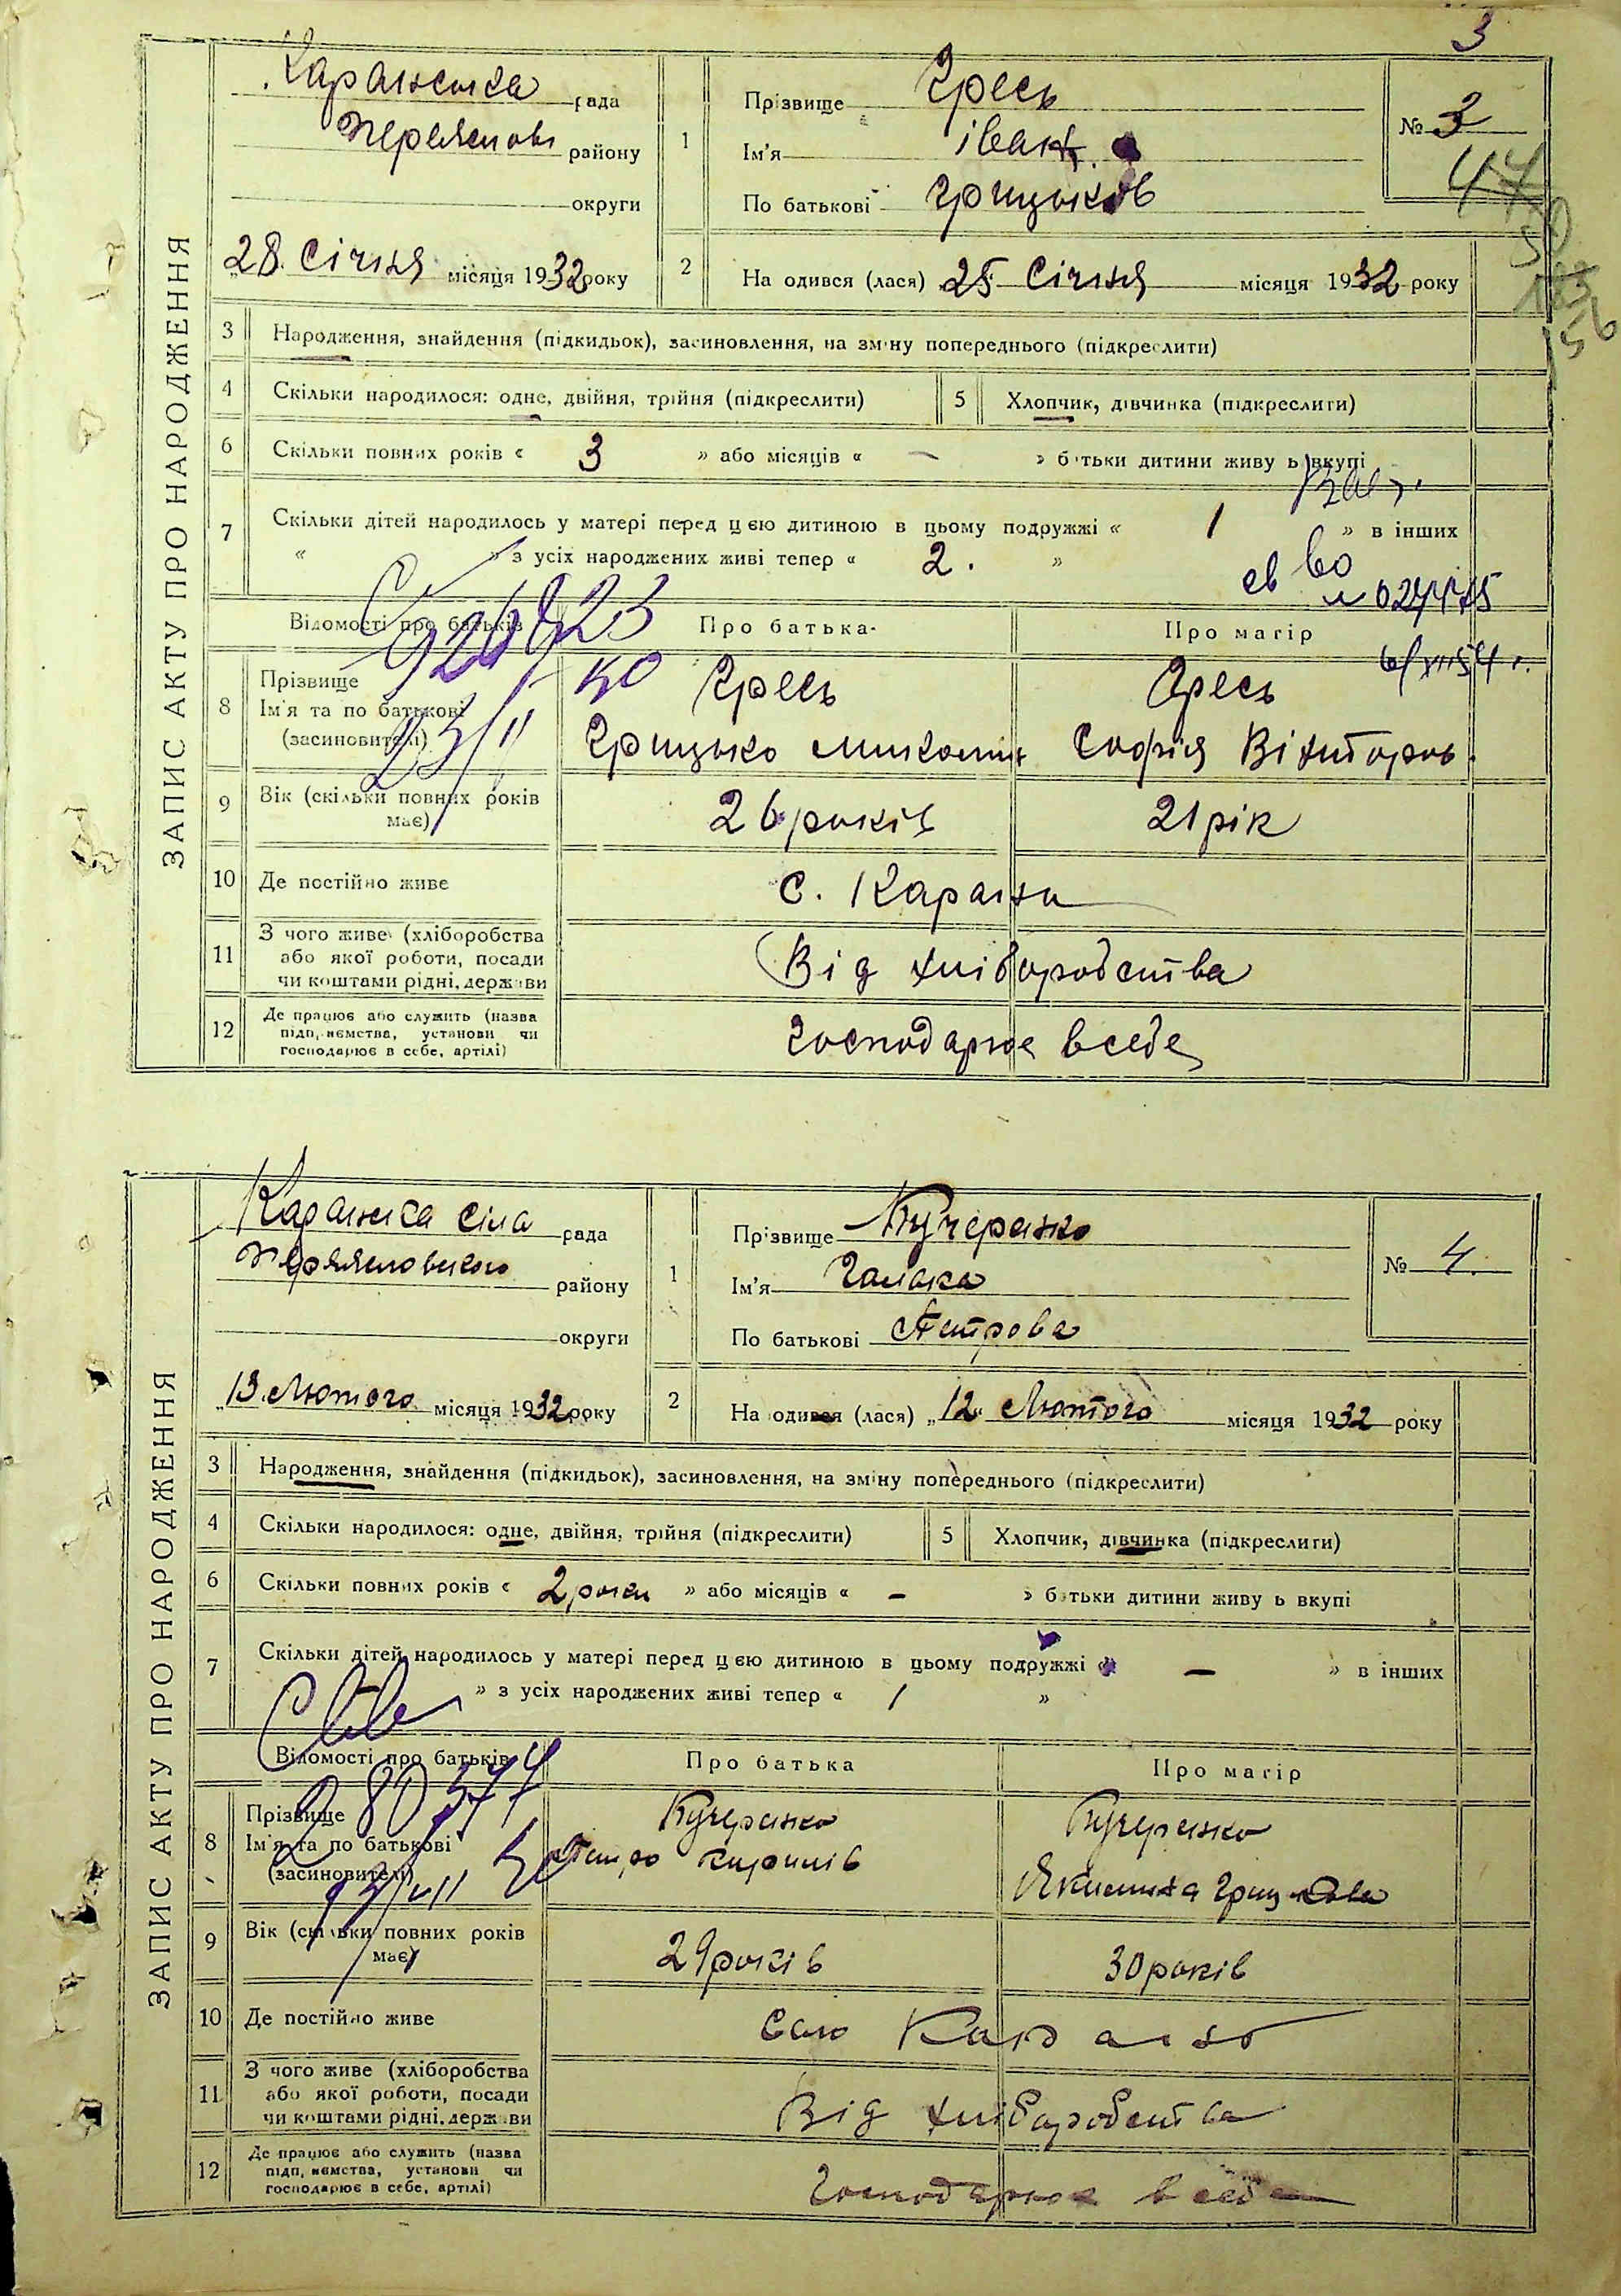 3
ЗАПИС АКТУ ПРО НАРОДЖЕННЯ
Каранська рада
Переяслов району
округи
„28 Січня місяця 1932 року
1
Прізвище Гресь
Ім'я Іван
По батькові Грицьков
№ 3
44
2 На одився (лася) „25 Січня місяця 1932 року
3 Народження, знайдення (підкидьок), засиновлення, на зміну попереднього (підкреслити)
4 Скільки народилося: одне, двійня, трійня (підкреслити) 5 Хлопчик, дівчинка (підкреслити)
6 Скільки повних років « 3 » або місяців « — » батьки дитини живу ь вкупі
7 Скільки дітей народилось у матері перед цею дитиною в цьому подружжі « 1 » в інших
« » з усіх народжених живі тепер « 2. »
Відомості про батьків Про батька Про матір
8 Прізвище
Ім'я та по батькові
(засиновителі)
Гресь
Грицько
Гресь
Софія Вікторов.
9 Вік (скільки повних років має) 26 років 21 рік
10 Де постійно живе с. Карань
11 З чого живе (хліборобства
або якої роботи, посади
чи коштами рідні, держави
Від хліборобства
12 Де працює або служить (назва
підп, иємства, установи чи
господарює в себе, артілі)
Господарює в себе
ЗАПИС АКТУ ПРО НАРОДЖЕННЯ
Каранська рада
району
округи
„13 Лютого місяця 1932 року
1
Прізвище Кучеренко
Ім'я
По батькові Петрова
№ 4.
2 На одився (лася) „12" Лютого місяця 1932 року
3 Народження, знайдення (підкидьок), засиновлення, на зміну попереднього (підкреслити)
4 Скільки народилося: одне, двійня, трійня (підкреслити) 5 Хлопчик, дівчинка (підкреслити)
6 Скільки повних років « 2 роки » або місяців « – » батьки дитини живу ь вкупі
7 Скільки дітей народилось у матері перед цею дитиною в цьому подружжі « – » в інших
» з усіх народжених живі тепер « 1 »
Відомості про батьків Про батька Про матір
8 Прізвище
Ім'я та по батькові
(засиновителі)
Кучеренко
Петро Кирилів
Кучеренко
9 Вік (скільки повних років має) 29 років 30 років
10 Де постійно живе село Карань
11 З чого живе (хліборобства
або якої роботи, посади
чи коштами рідні, держави
Від хліборобства
12 Де працює або служить (назва
підп, иємства, установи чи
господарює в себе, артілі)
Господарює в себе